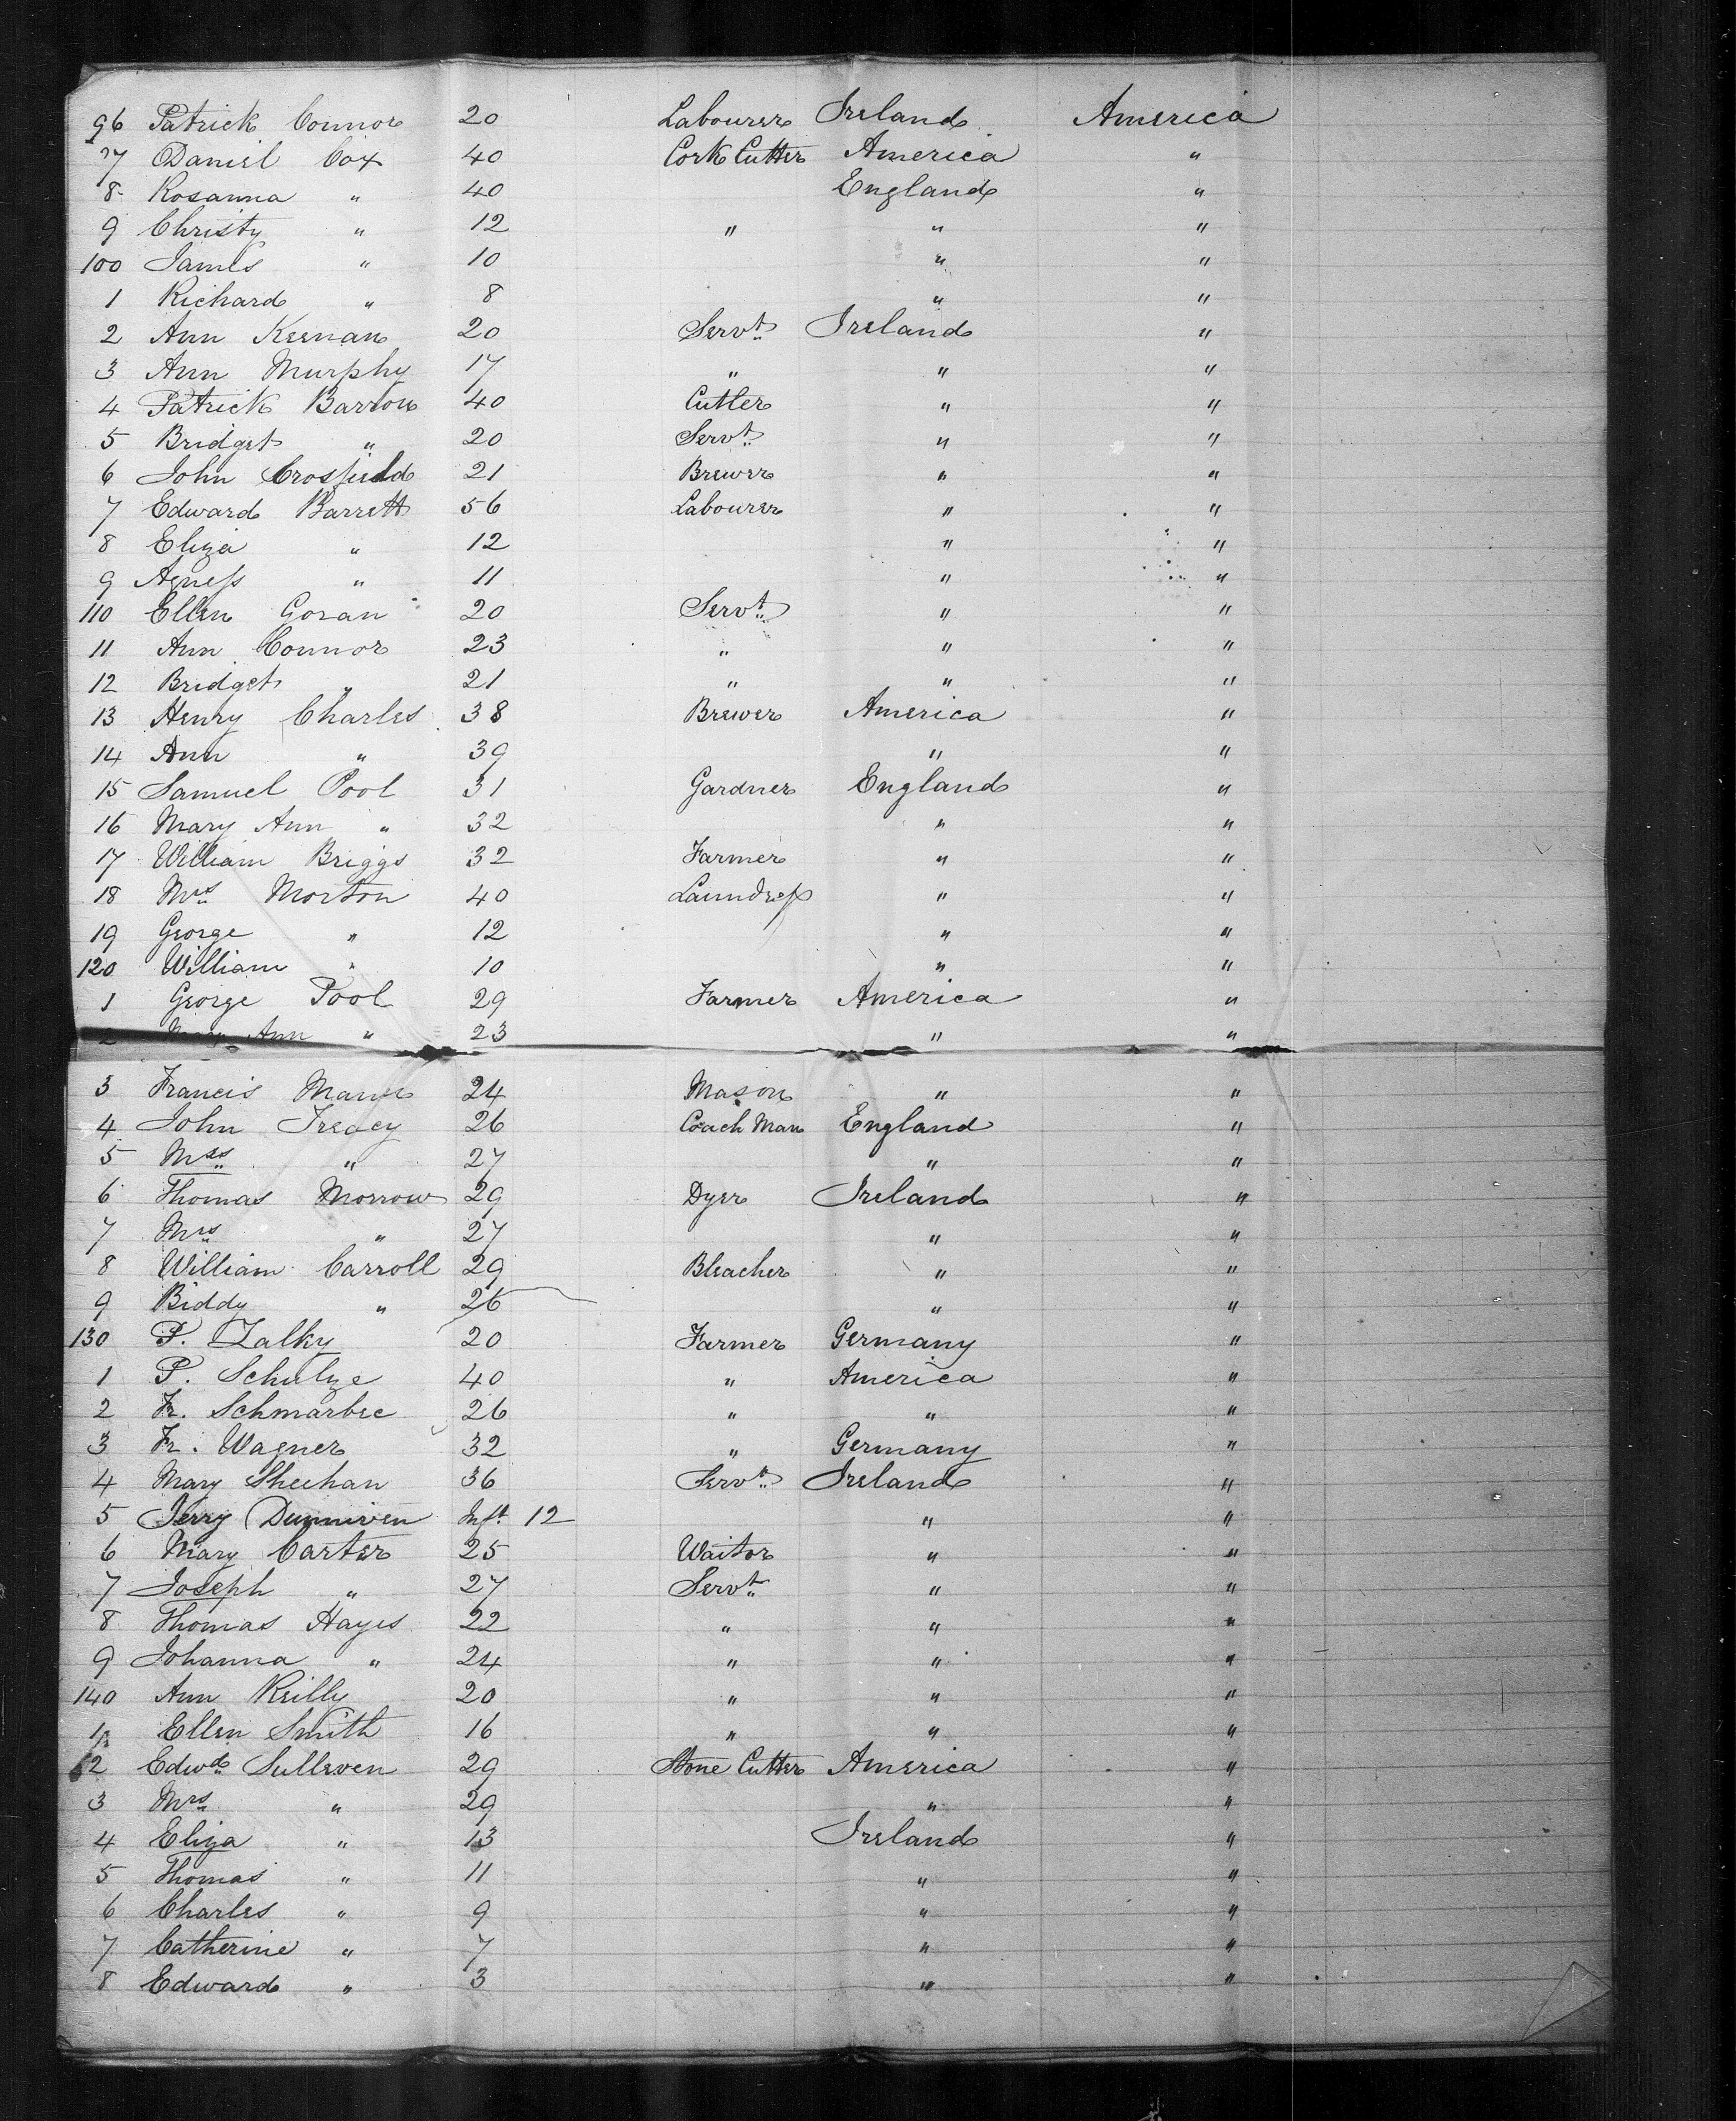 96 Patrick Connor 20 Labourer Ireland America
97 Daniel Cox 40 Cork Cutter America "
8 Rosanna " 40 England "
9 Christy " 12 " " "
100 James " 10 " "
1 Richard " 8 " "
2 Ann Keenan 20 Servt Ireland "
3 Ann Murphy 17 " " "
4 Patrick Barrow 40 Cutler " "
5 Bridget " 20 Servt " "
6 John Crosfield 21 Brewer " "
7 Edward Barrett 56 Labourer " "
8 Eliza " 12 " "
9 Agness " 11 " "
110 Ellen Goran 20 Servt " "
11 Ann Connor 23 " " "
12 Bridget " 21 " " "
13 Henry Charles 38 Brewer America "
14 Ann " 39 " "
15 Samuel Pool 31 Gardner England "
16 Mary Ann " 32 " "
17 William Briggs 32 Farmer " "
18 Mrs Morton 40 Laundress " "
19 George " 12 " "
120 William " 10 " "
1 George Pool 29 Farmer America "
2 Mary Ann " 23 " "
3 Francis Mann 24 Mason " "
4 John Treacy 26 Coach Man England "
5 Mrs " 27 " "
6 Thomas Morrow 29 Dyer Ireland "
7 Mrs " 27 " "
8 William Carroll 29 Bleacher " "
9 Biddy " 26 " "
130 P. Zalky 20 Farmer Germany "
1 P. Schulze 40 " America "
2 Fr. Schmarbec 26 " " "
3 Fr. Wagner 32 " Germany "
4 Mary Sheehan 36 Servt Ireland "
5 Jerry Dunniven Inft 12 " "
6 Mary Carter 25 Waitor " "
7 Joseph " 27 Servt " "
8 Thomas Hayes 22 " " "
9 Johanna " 24 " " "
140 Ann Reilly 20 " " "
1 Ellen Smith 16 " " "
2 Edwd Sulleven 29 Stone Cutter America "
3 Mrs " 29 " "
4 Eliza " 13 Ireland "
5 Thomas " 11 " "
6 Charles " 9 " "
7 Catherine " 7 " "
8 Edward " 3 " "